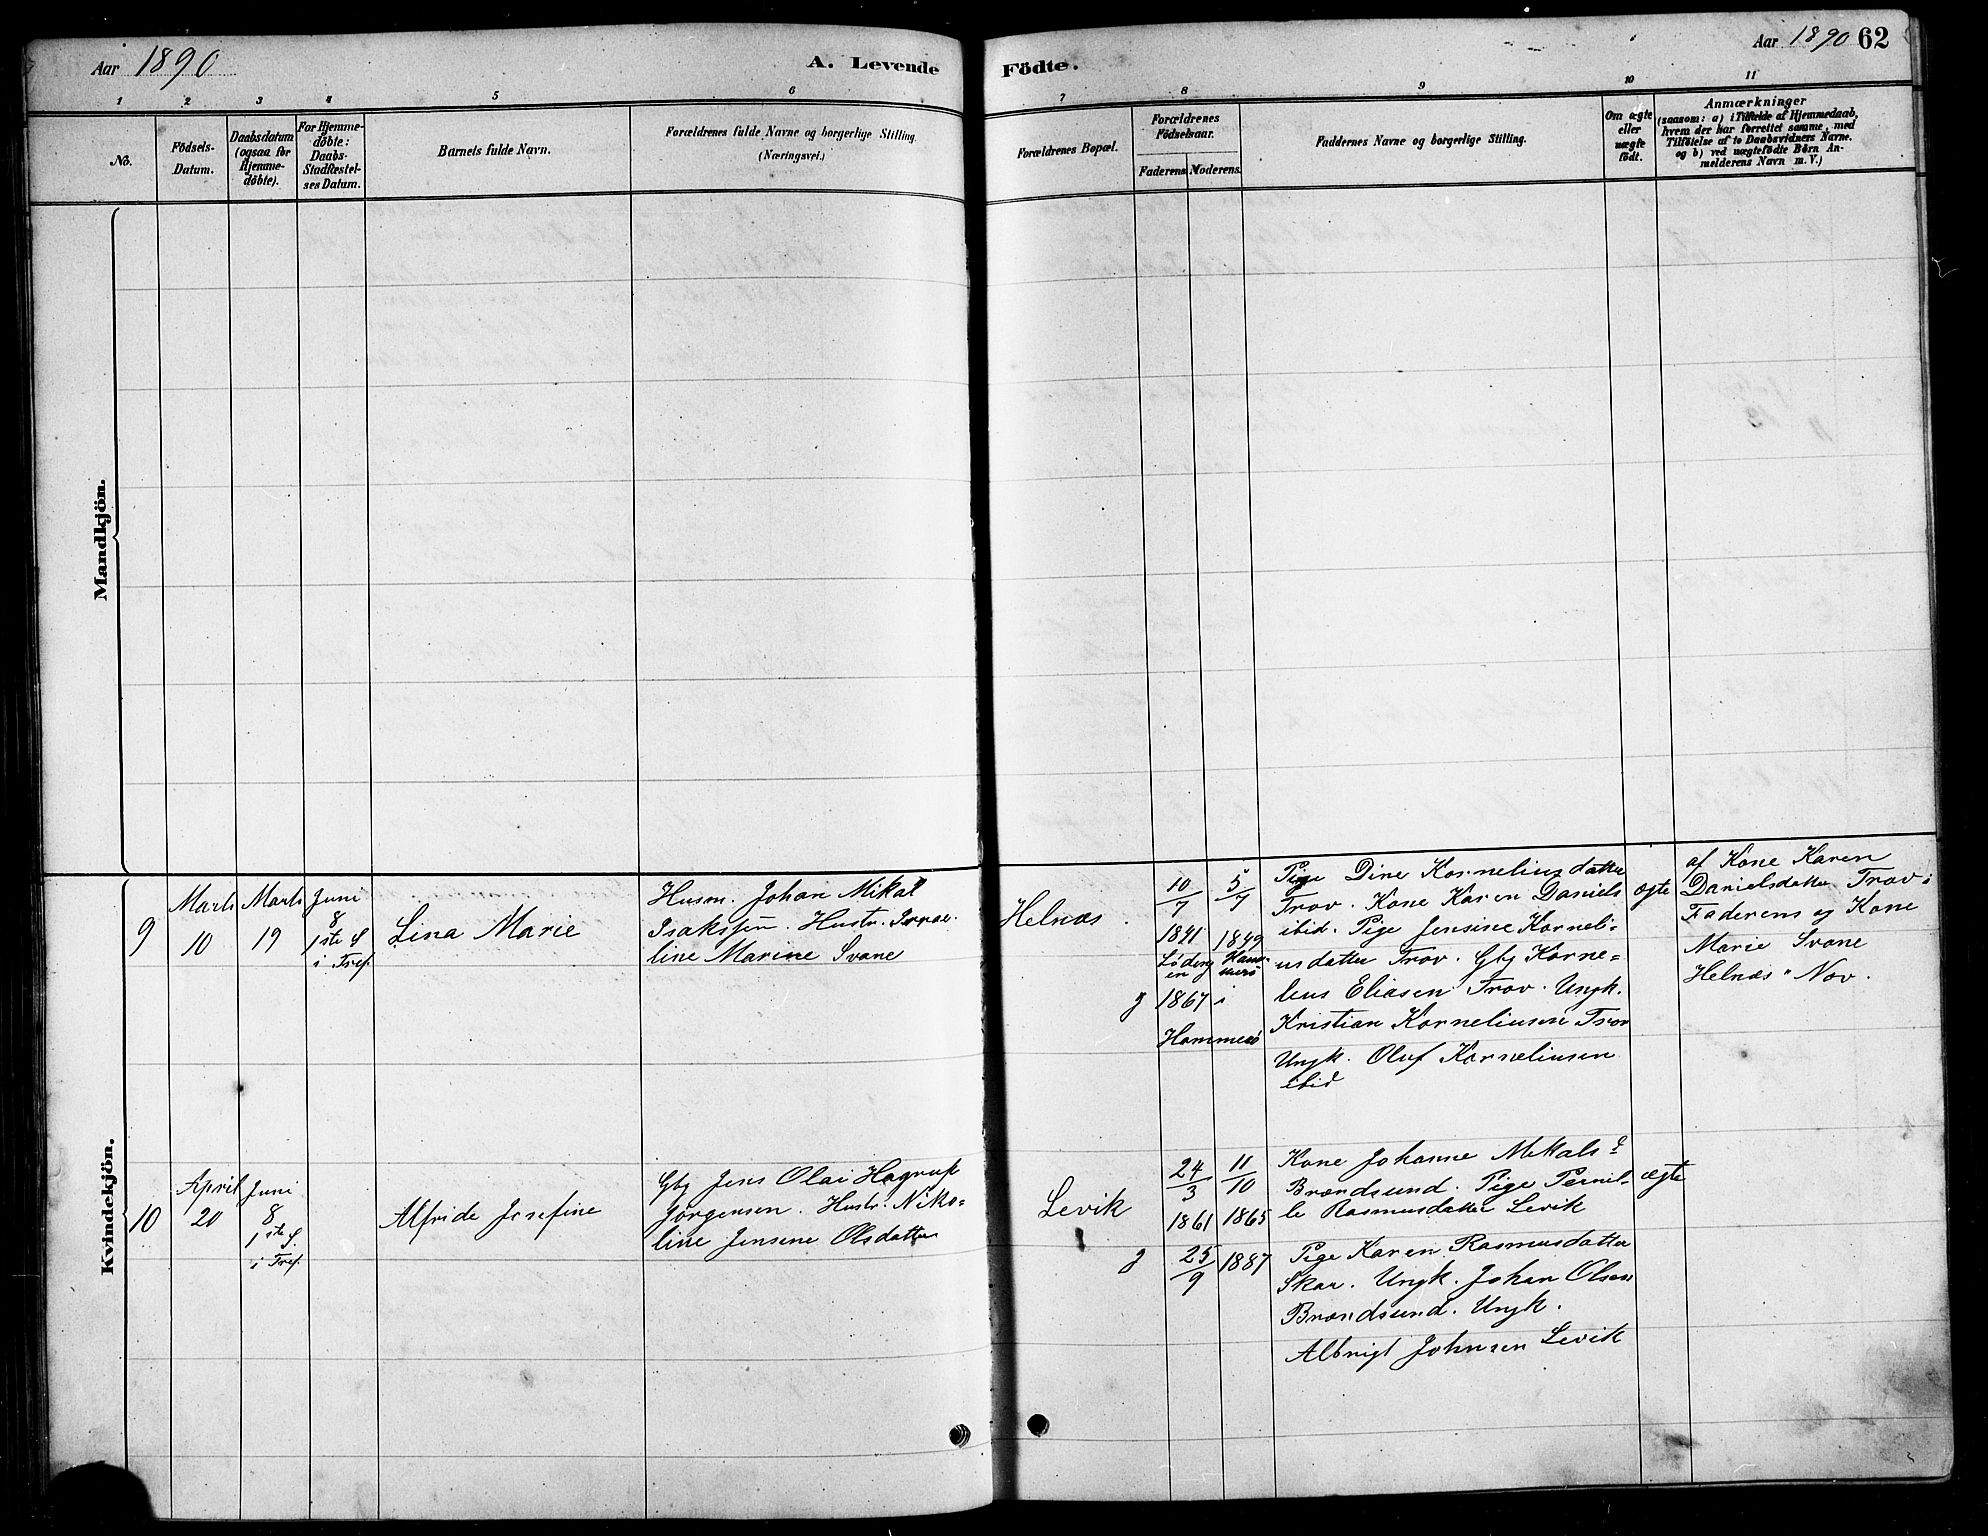 Aar 1890
A. Levende
Födte.
Aar 1890 62
1 2 3 4 5 6 7 8 9 10 11
No.
Födsels-
Datum.
Daabsdatum
(ogsaa for
Hjemme-
döbte).
For Hjemme-
döbte:
Daabs-
Stadfæstel-
ses Datum.
Barnets fulde Navn.
Forældrenes fulde Navne og borgerlige Stilling.
(Næringsvei.)
Forældrenes Bopæl.
Forældrenes
Födselsaar.
Faderens Moderens.
Faddernes Navne og borgerlige Stilling.
Om ægte
eller
uægte
födt.
Anmærkninger
(saasom: a) i Tilfælde af Hjemmedaab,
hvem der har forrettet samme, med
Tilföielse af to Daabsvidners Navne.
og b) ved uægtefödte Börn An-
melderens Navn m. V.)
Mandkjön.
Kvindekjön.
9
Marts
10
Marts
19
Juni
8
1ste S
i Tref.
Lina Marie
Husm. Johan Mikal
Isakssen. Hustr.
line Marine Svane
Helnæs
10/7
1841
Løding
en
5/7
1849
Ham
merø
1867 i
Hammerö
Pige Dine Korneliusdatter
Trov. Kone Karen Daniels
ibid. Pige Jensine Korneli-
usdatter Trov. Gbg Korne-
lius Eliasen Trov. Ungk.
Kristian Korneliusen Trov
Ungk. Oluf Korneliusen
ibid
ægte
af Kone Karen
Danielsdatter Trov i
Faderens og Kone
Marie Svane
Helnæs " Nov.
10
April
20
Juni
8
1ste S.
i Tref.
Alfride Josefine
Gbg Jens Olai Hagrup
Jørgensen. Hustr. Niko-
line Jensine Olsdatter
Levik
24/3
1861
11/10
1865
g 25/9 1887
Kone Johanne Mikals d
Brændsund. Pige Pernil-
le Rasmusdatter Levik
Pige Karen Rasmusdatter
Skar. Ungk. Johan Olsen
Brændsund. Ungk.
Albrigt Johnsen Levik
ægte